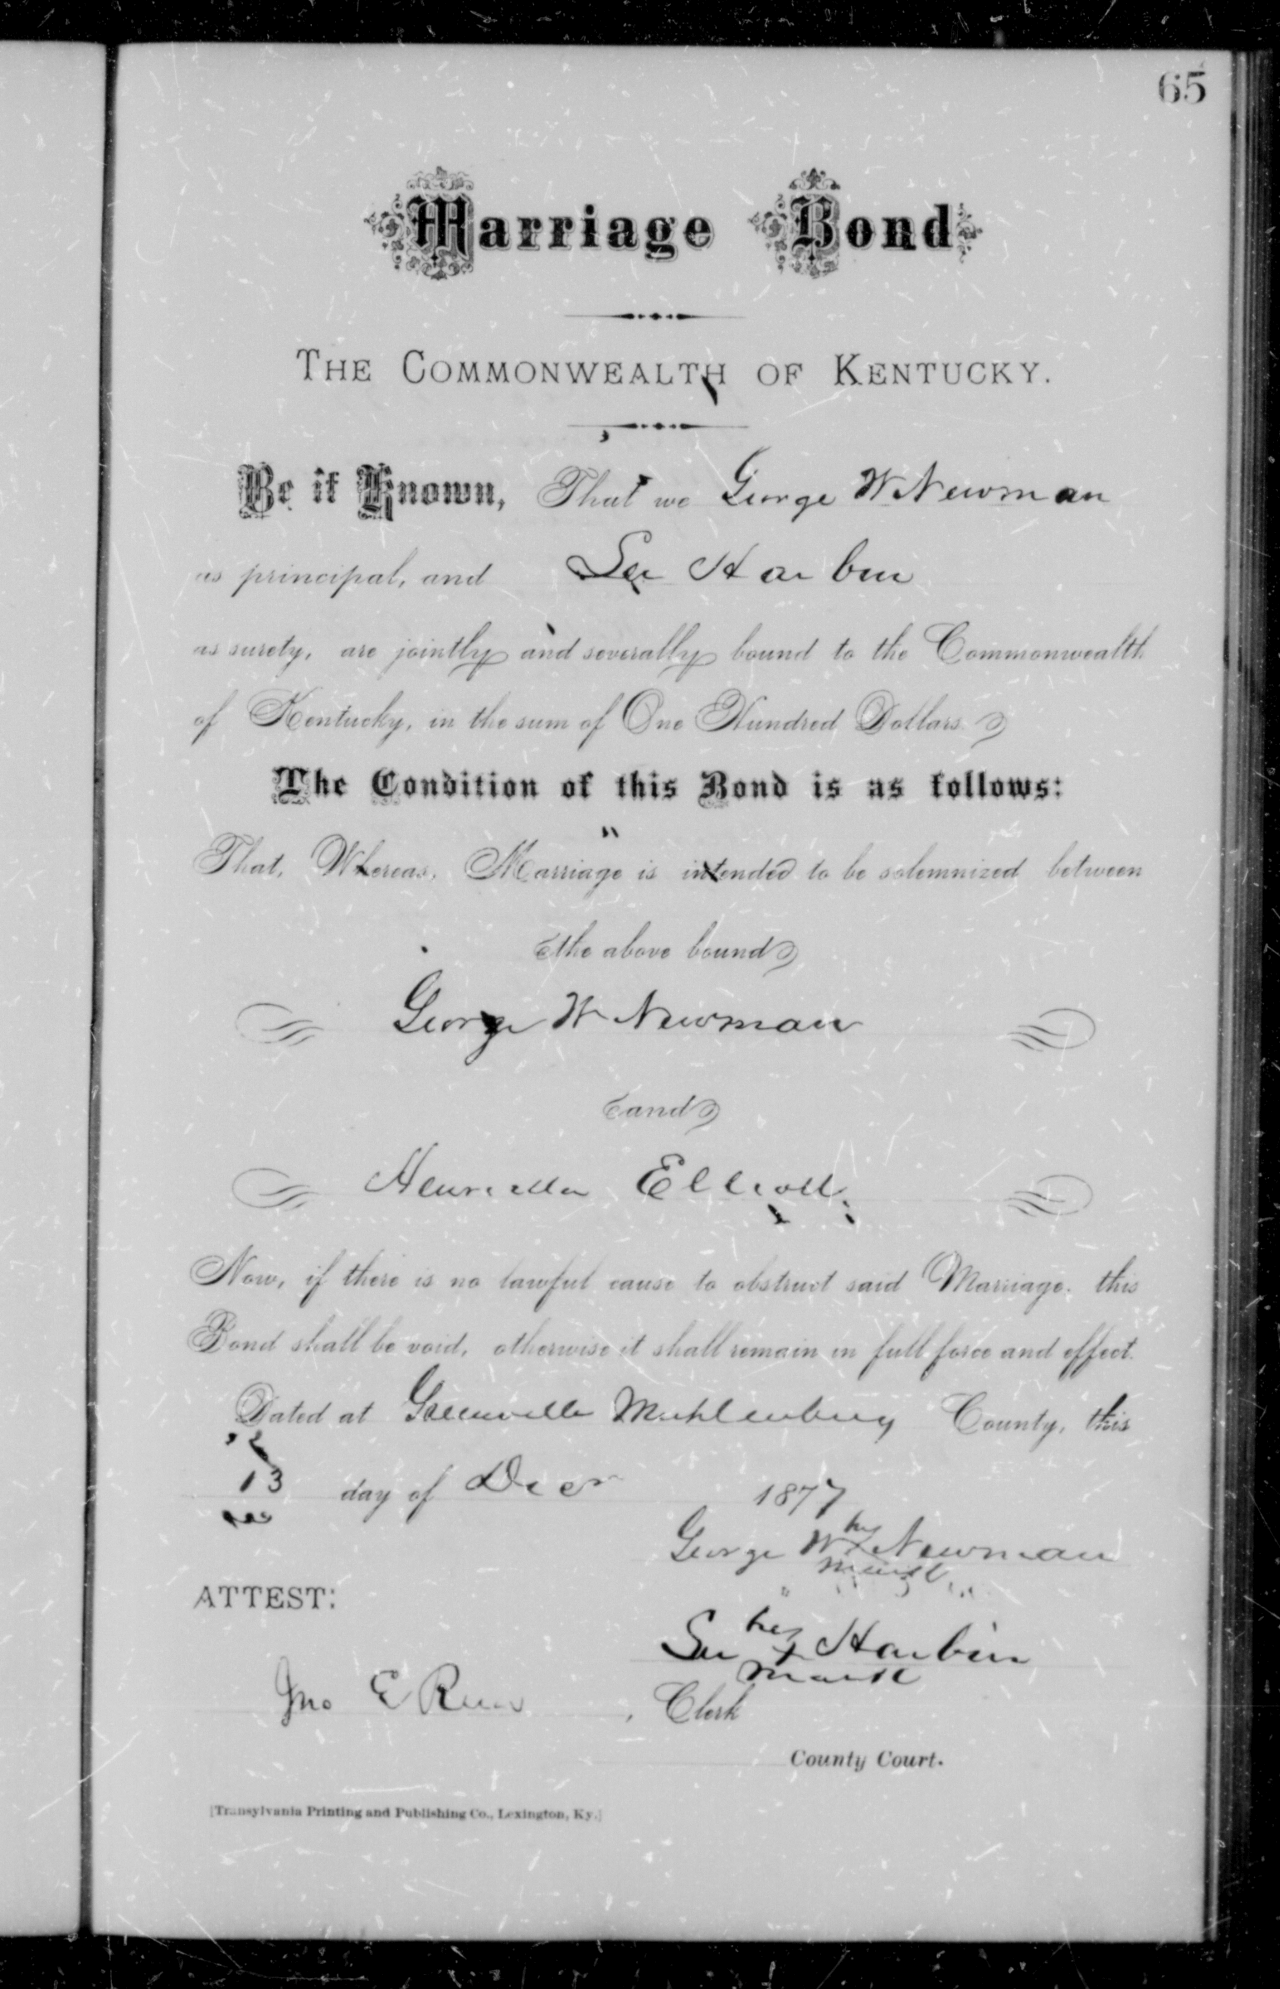 65
Marriage Bond
THE COMMONWEALTH OF KENTUCKY.
Be it Known, That we George W Newman
as principal, and Harbin
as surety, are jointly and severally bound to the Commonwealth
of Kentucky, in the sum of One Hundred Dollars.
The Condition of this Bond is as follows:
That, Whereas, Marriage is intended to be solemnized between
the above bound
George W Newman
and
Henrietta Elliott
Now, if there is no lawful cause to obstruct said Marriage, this
Bond shall be void, otherwise it shall remain in full force and effect.
Dated at Greenville Muhlenburg County, this
13 day of Decr 1877
his
George W X Newman
mark
ATTEST:
his
X Harbin
mark
Jno E , Clerk
County Court.
[Transylvania Printing and Publishing Co., Lexington, Ky.]